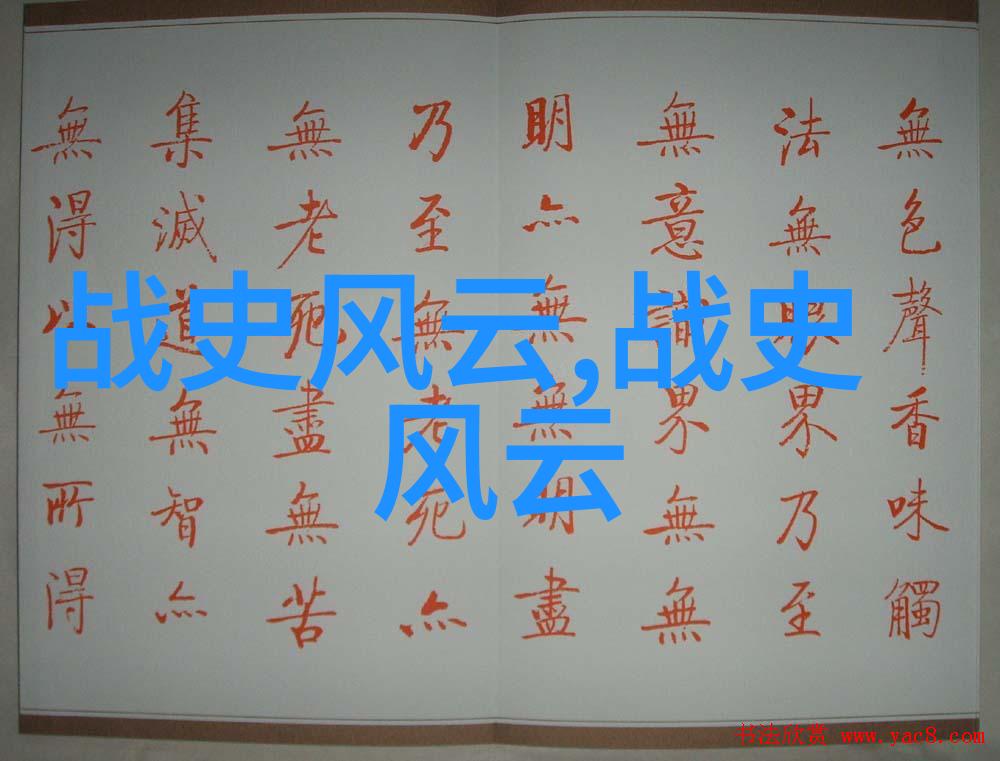 無色聲香味觸
法無眼界乃至
無意識界無無
明亦無無明盡
乃至無老死亦
無老死盡無苦
集滅道無智亦
無得以無所得
战史风云,战史
风云
书法欣赏 www.yac8.com